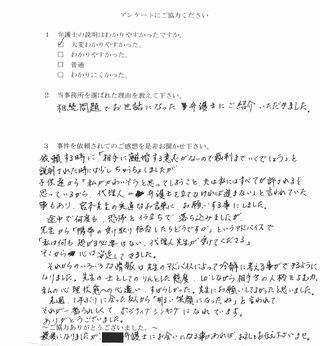 アンケートにご協力ください
1 弁護士の説明はわかりやすかったですか。
☑ 大変わかりやすかった。
□ わかりやすかった。
□ 普通
□ わかりにくかった。
2 当事務所を選ばれた理由を教えて下さい。
相続問題でお世話になった弁護士にご紹介いただきました。
3 事件を依頼されてのご感想を是非お聞かせ下さい。
依頼する時に「相手に離婚する意志がないので裁判までいくでしょう」と
説明された時には少しちゅうちょしましたが
子供達から「私がかわいそうと思ってしまうこと、夫は私にはすべてが許されると
思っているから、代理人 弁護士を立てなければ進まない」と言われていた
事もあり、宮本先生の率直なお言葉に、お願いする事にしました。
途中で何度も、恐怖とイライラで落ち込みましたが
先生から「携帯の受け取り拒否したらどうですか」というアドバイスで
「私は何も恐がる必要はない、代理人先生が来てくださる」
そこから心は安定してきました。
それからのいろいろな情報は先生のアドバイスによって冷静に考える事ができるように
なりました。先生の一主としてのりんとした態度、はしばしから相手の人格をよまれ、
私の心理状態への心遣い、すばらしかった。先生にお願いしてよかったと思いました。
先週、1年ぶりに会った友人から「明るい笑顔になったね」と言われて
それが一番うれしくて、ポジティブシンキングになれています。
ありがとうございました。
~ご協力ありがとうございました。~
最後になりましたが 弁護士にお会いになる事があれば、よろしくお伝え下さいませ。